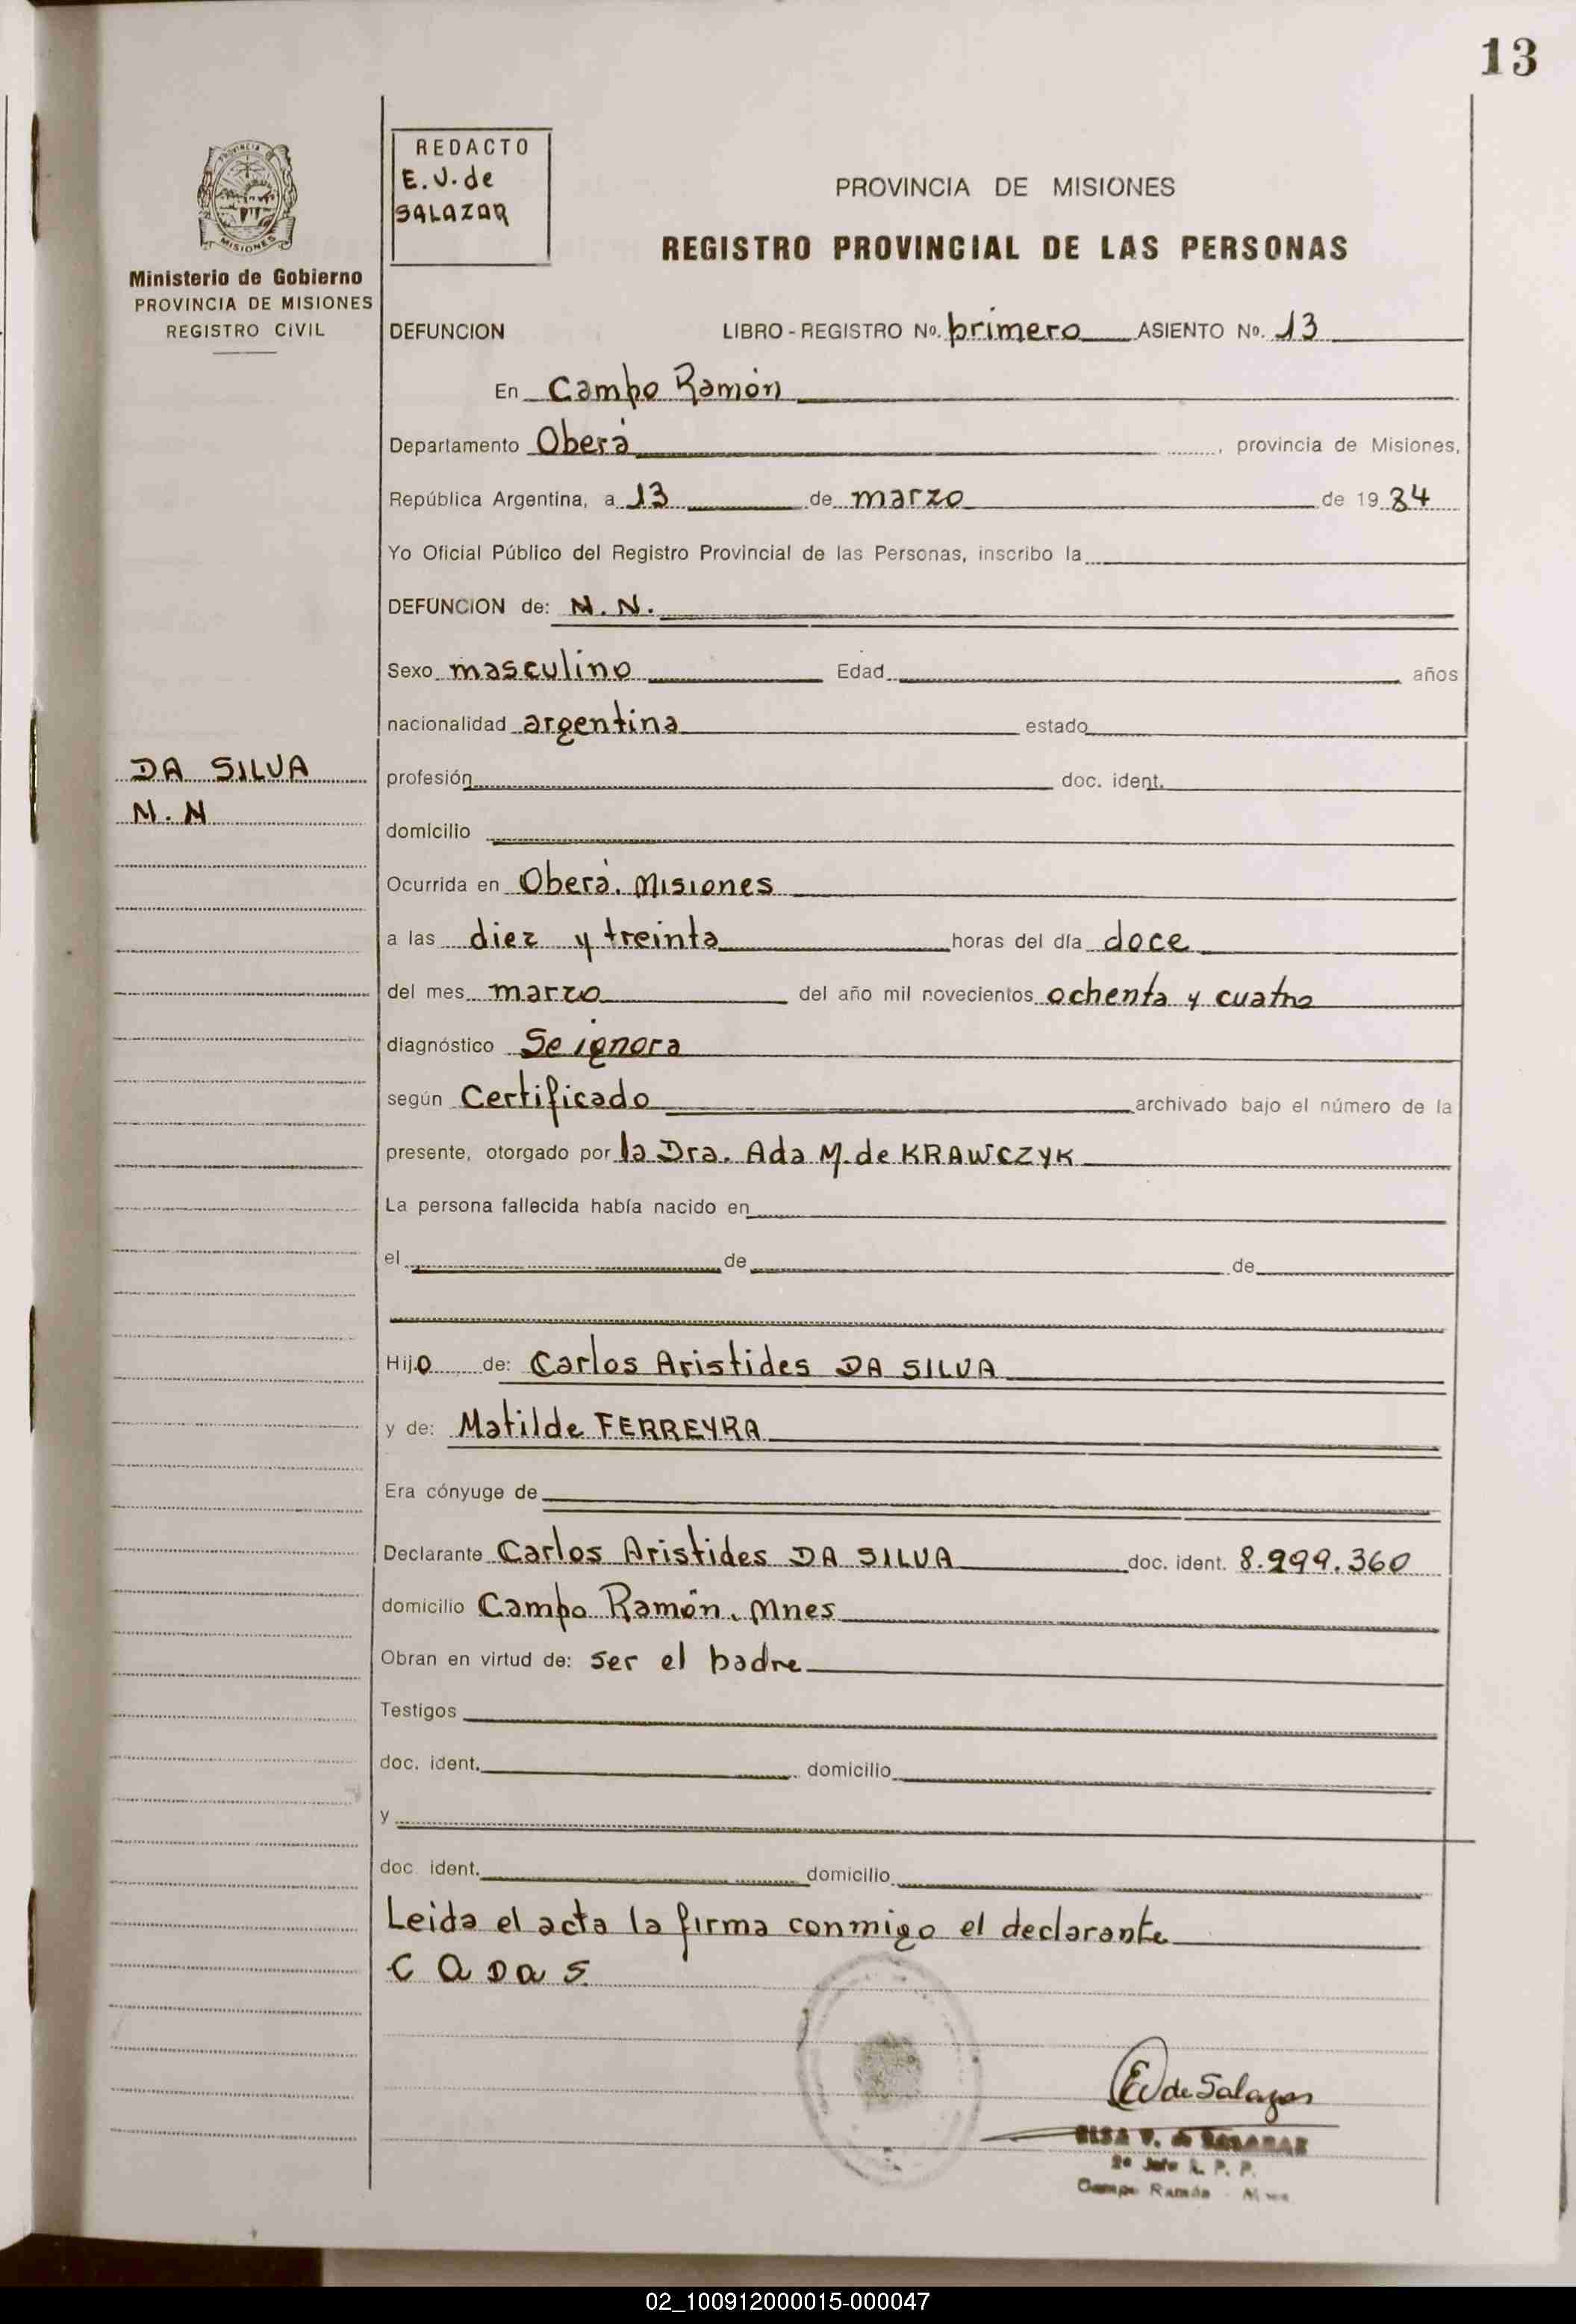 13
REDACTO
E. V. de
SALAZAR
PROVINCIA DE MISIONES
REGISTRO PROVINCIAL DE LAS PERSONAS
PROVINCIA
MISIONES
Ministerio de Gobierno
PROVINCIA DE MISIONES
REGISTRO CIVIL
DEFUNCION LIBRO - REGISTRO No. primero ASIENTO No. 13
En Campo Ramón
Departamento Oberá, provincia de Misiones,
República Argentina, a 13 de marzo de 1984
Yo Oficial Público del Registro Provincial de las Personas, inscribo la
DEFUNCION de: N. N.
Sexo masculino Edad años
nacionalidad argentina estado
DA SILVA
N. N
profesión doc. ident.
domicilio
Ocurrida en Oberá. Misiones
a las diez y treinta horas del día doce
del mes marzo del año mil novecientos ochenta y cuatro
diagnóstico Se ignora
según Certificado archivado bajo el número de la
presente, otorgado por la Dra. Ada M. de KRAWCZYK
La persona fallecida había nacido en
el de de
Hijo de: Carlos Aristides DA SILVA
y de: Matilde FERREYRA
Era cónyuge de
Declarante Carlos Aristides DA SILVA doc. ident. 8.299.360
domicilio Campo Ramón. Mnes
Obran en virtud de: ser el padre
Testigos
doc. ident. domicilio
y
doc ident. domicilio
Leida el acta la firma conmigo el declarante
C A DA S
EV de Salazar
ELSA V. de SALAZAR
2º Jefe R. P. P.
Campo Ramón - Mnes
02_100912000015-000047